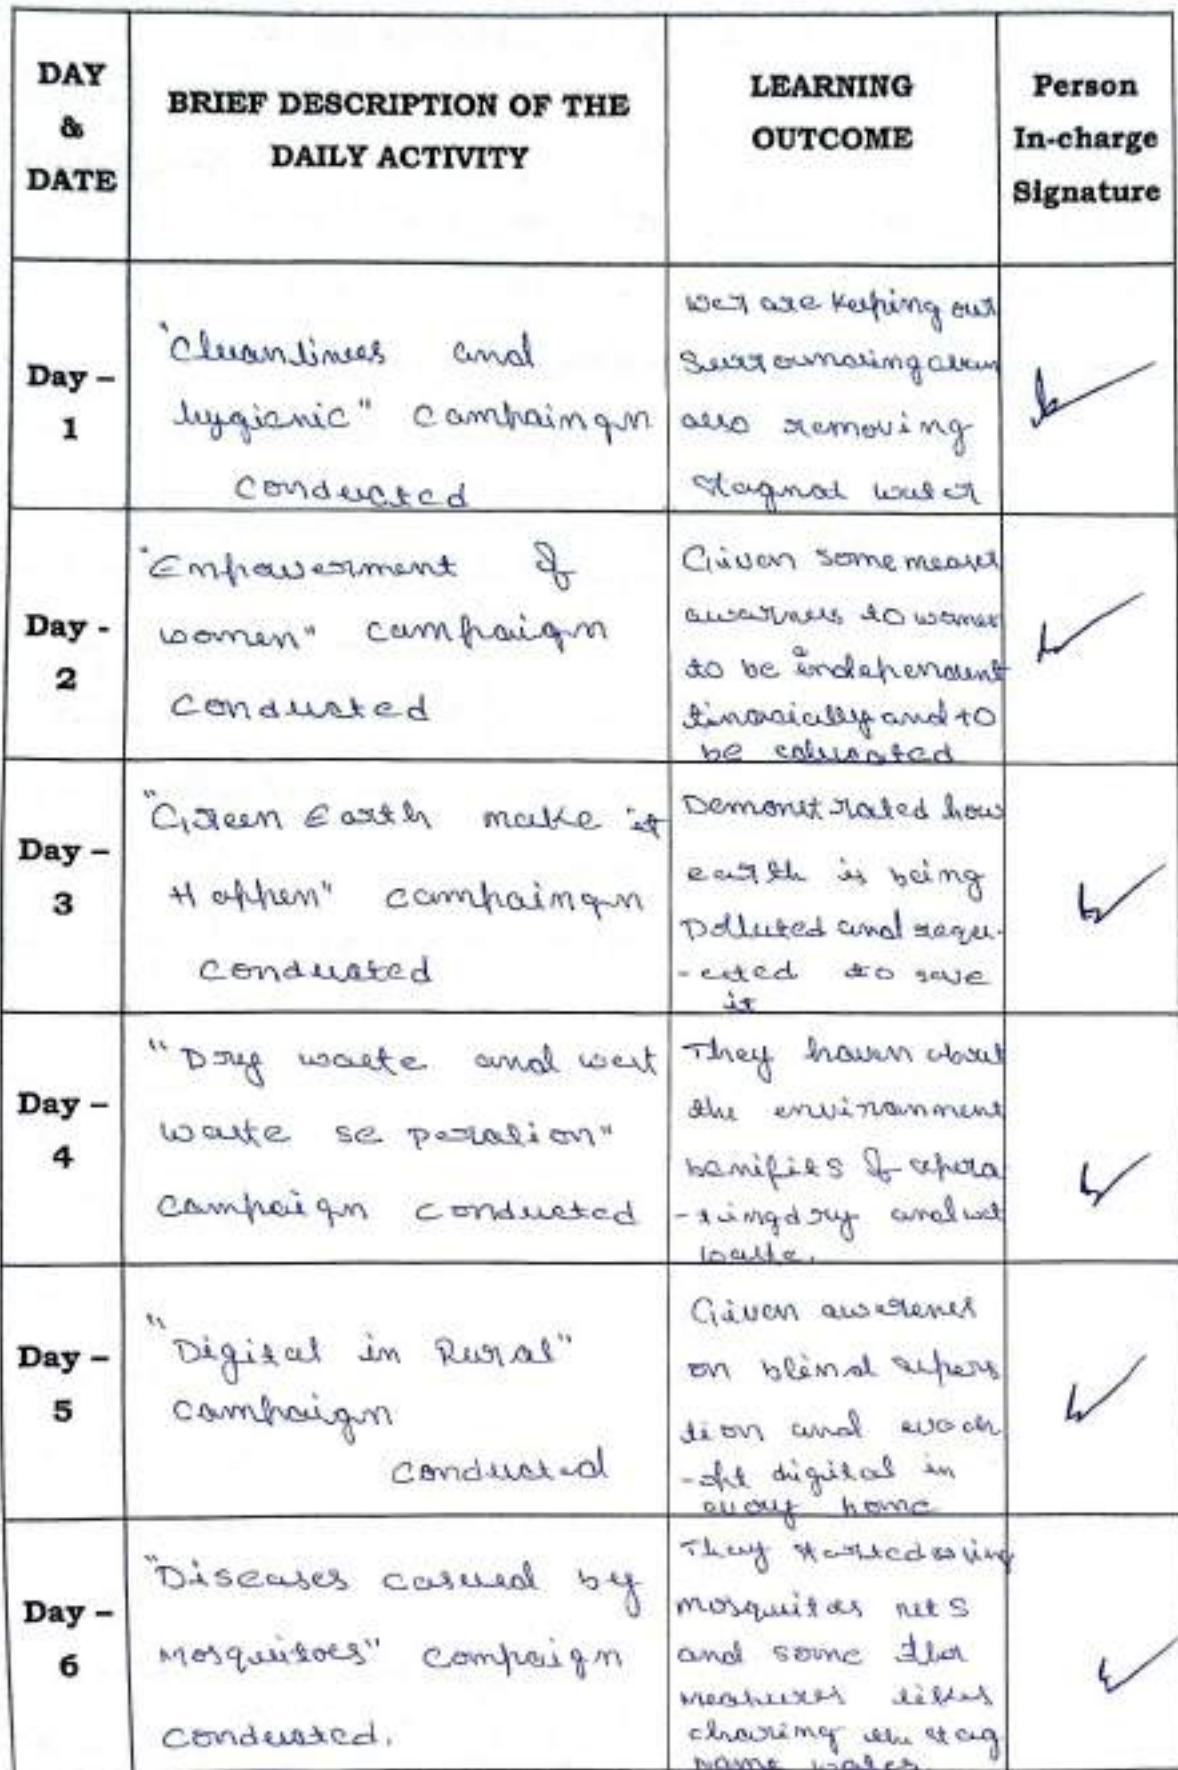 DAY & DATE
BRIEF DESCRIPTION OF THE
DAILY ACTIVITY
LEARNING
OUTCOME
Person
In-charge
Signature
Day – 1
"Cleanlines and
hygienic" campaingn
conducted
are keeping our
also removing
stagnat water
Day - 2
"Empowerment of
women" campaign
conducted
Given some
awarness to women
to be independent
and to
be educated
Day – 3
"Green Earth make it
Happen" campaingn
conducted
Demonstrated how
earth is being
Polluted and reque-
-ested to save
it
Day – 4
"Dry waste and wet
waste seperation"
campaign conducted
They about
the environment
benifits of sepera
-ting dry and wet
waste.
Day – 5
"Digital in Rural"
campaign
conducted
Given awarenes
on
tion and
digital in
every home
Day – 6
"Diseases casued by
Mosquitoes" campaign
conducted.
They started using
mosquitos nets
and some
measures
the stag
water